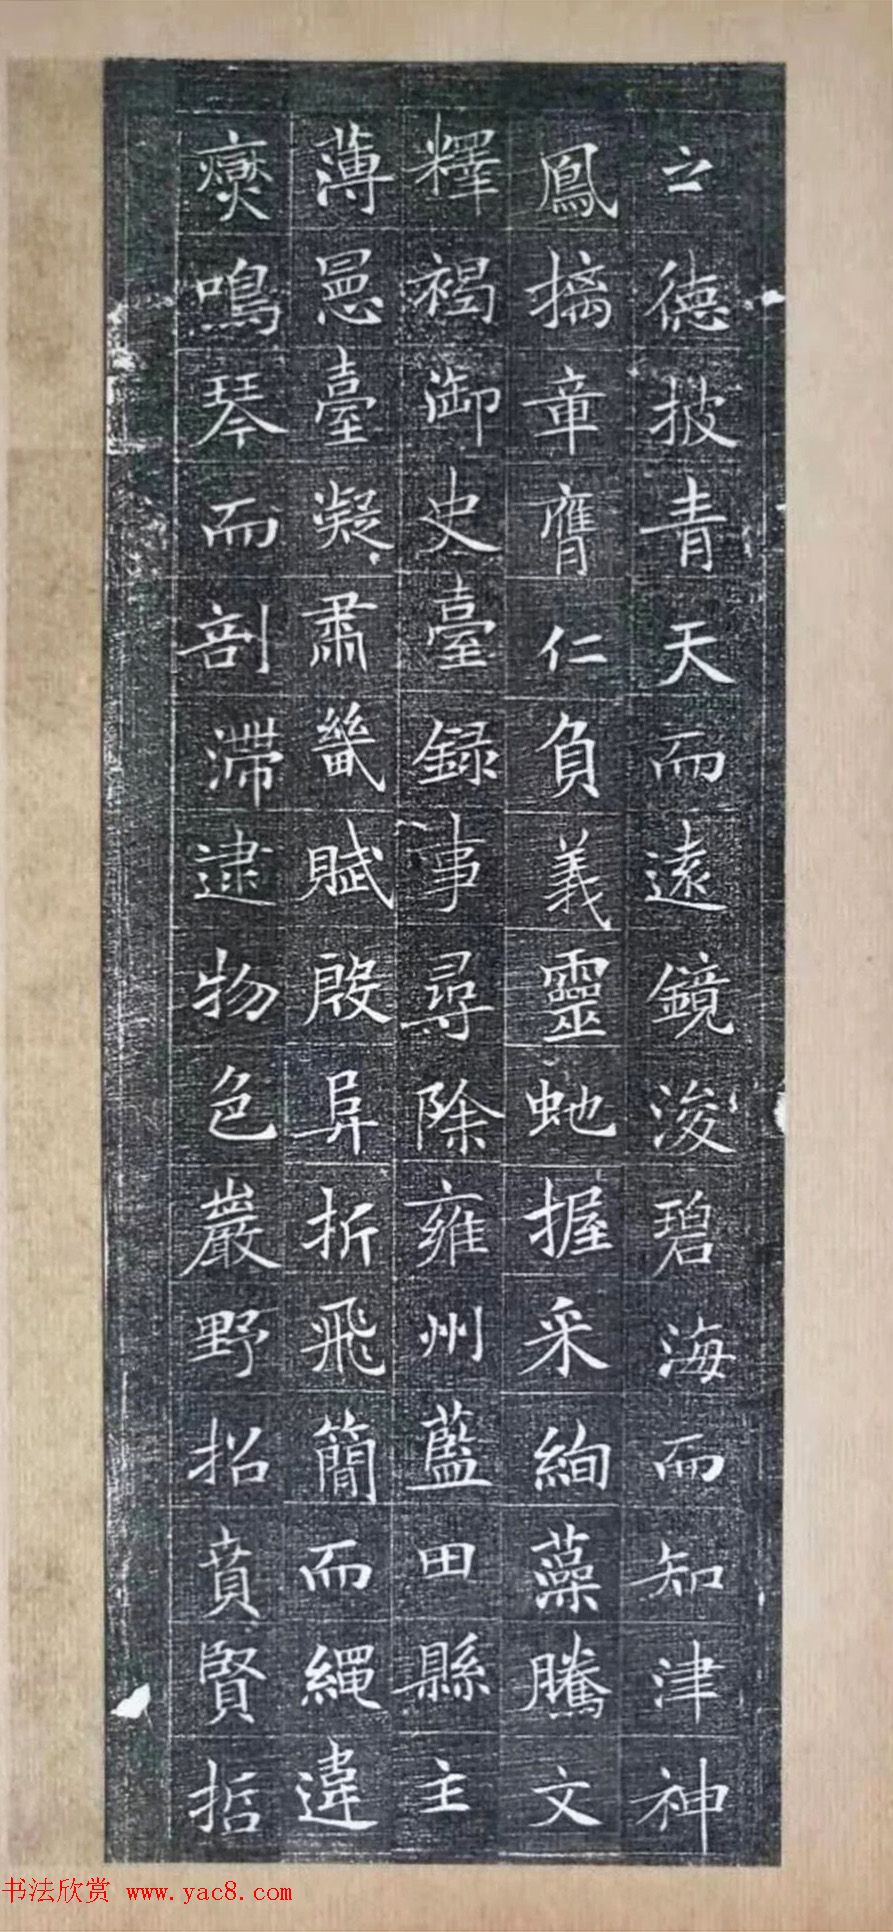 之德披青天而遠鏡浚碧海而知津神
鳳摛章膺仁負義靈虵握采絢藻騰文
釋褐御史臺録事尋除雍州藍田縣主
薄昷臺凝肅畿賦殷阜折飛簡而繩違
鳴琴而剖滯逮物色巖野招賁賢哲
书法欣赏 www.yac8.com